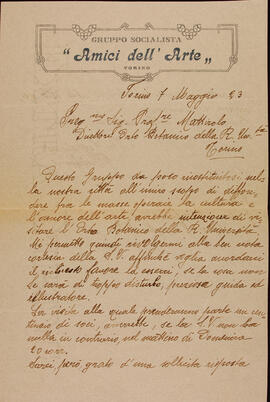 GRUPPO SOCIALISTA
"Amici dell'Arte"
TORINO
Torino 7 Maggio 23
Preg.mo Sig. Prof.re Mattirolo
Direttore Orto Botanico della R. Un.tà
Torino
Questo Gruppo da poco instituitosi nella
nostra città all'unico scopo di diffon-
dere fra le masse operaie la cultura e
l'amore dell'arte, avrebbe intenzione di vi-
sitare l'Orto Botanico della R. Università.
Mi permetto quindi rivolgermi alla ben nota
cortesia della S.V. affinchè voglia accordarci
il richiesto favore ed esserci, se la cosa non
le sarà di troppo disturbo, preziosa guida ed
illustratore.
La visita alla quale prenderanno parte un cen-
tinaio di soci, avverrebbe, se la S.V. non ha
nulla in contrario nel mattino di Domenica
20 corr.
Sarei però, grato d'una sollecita risposta